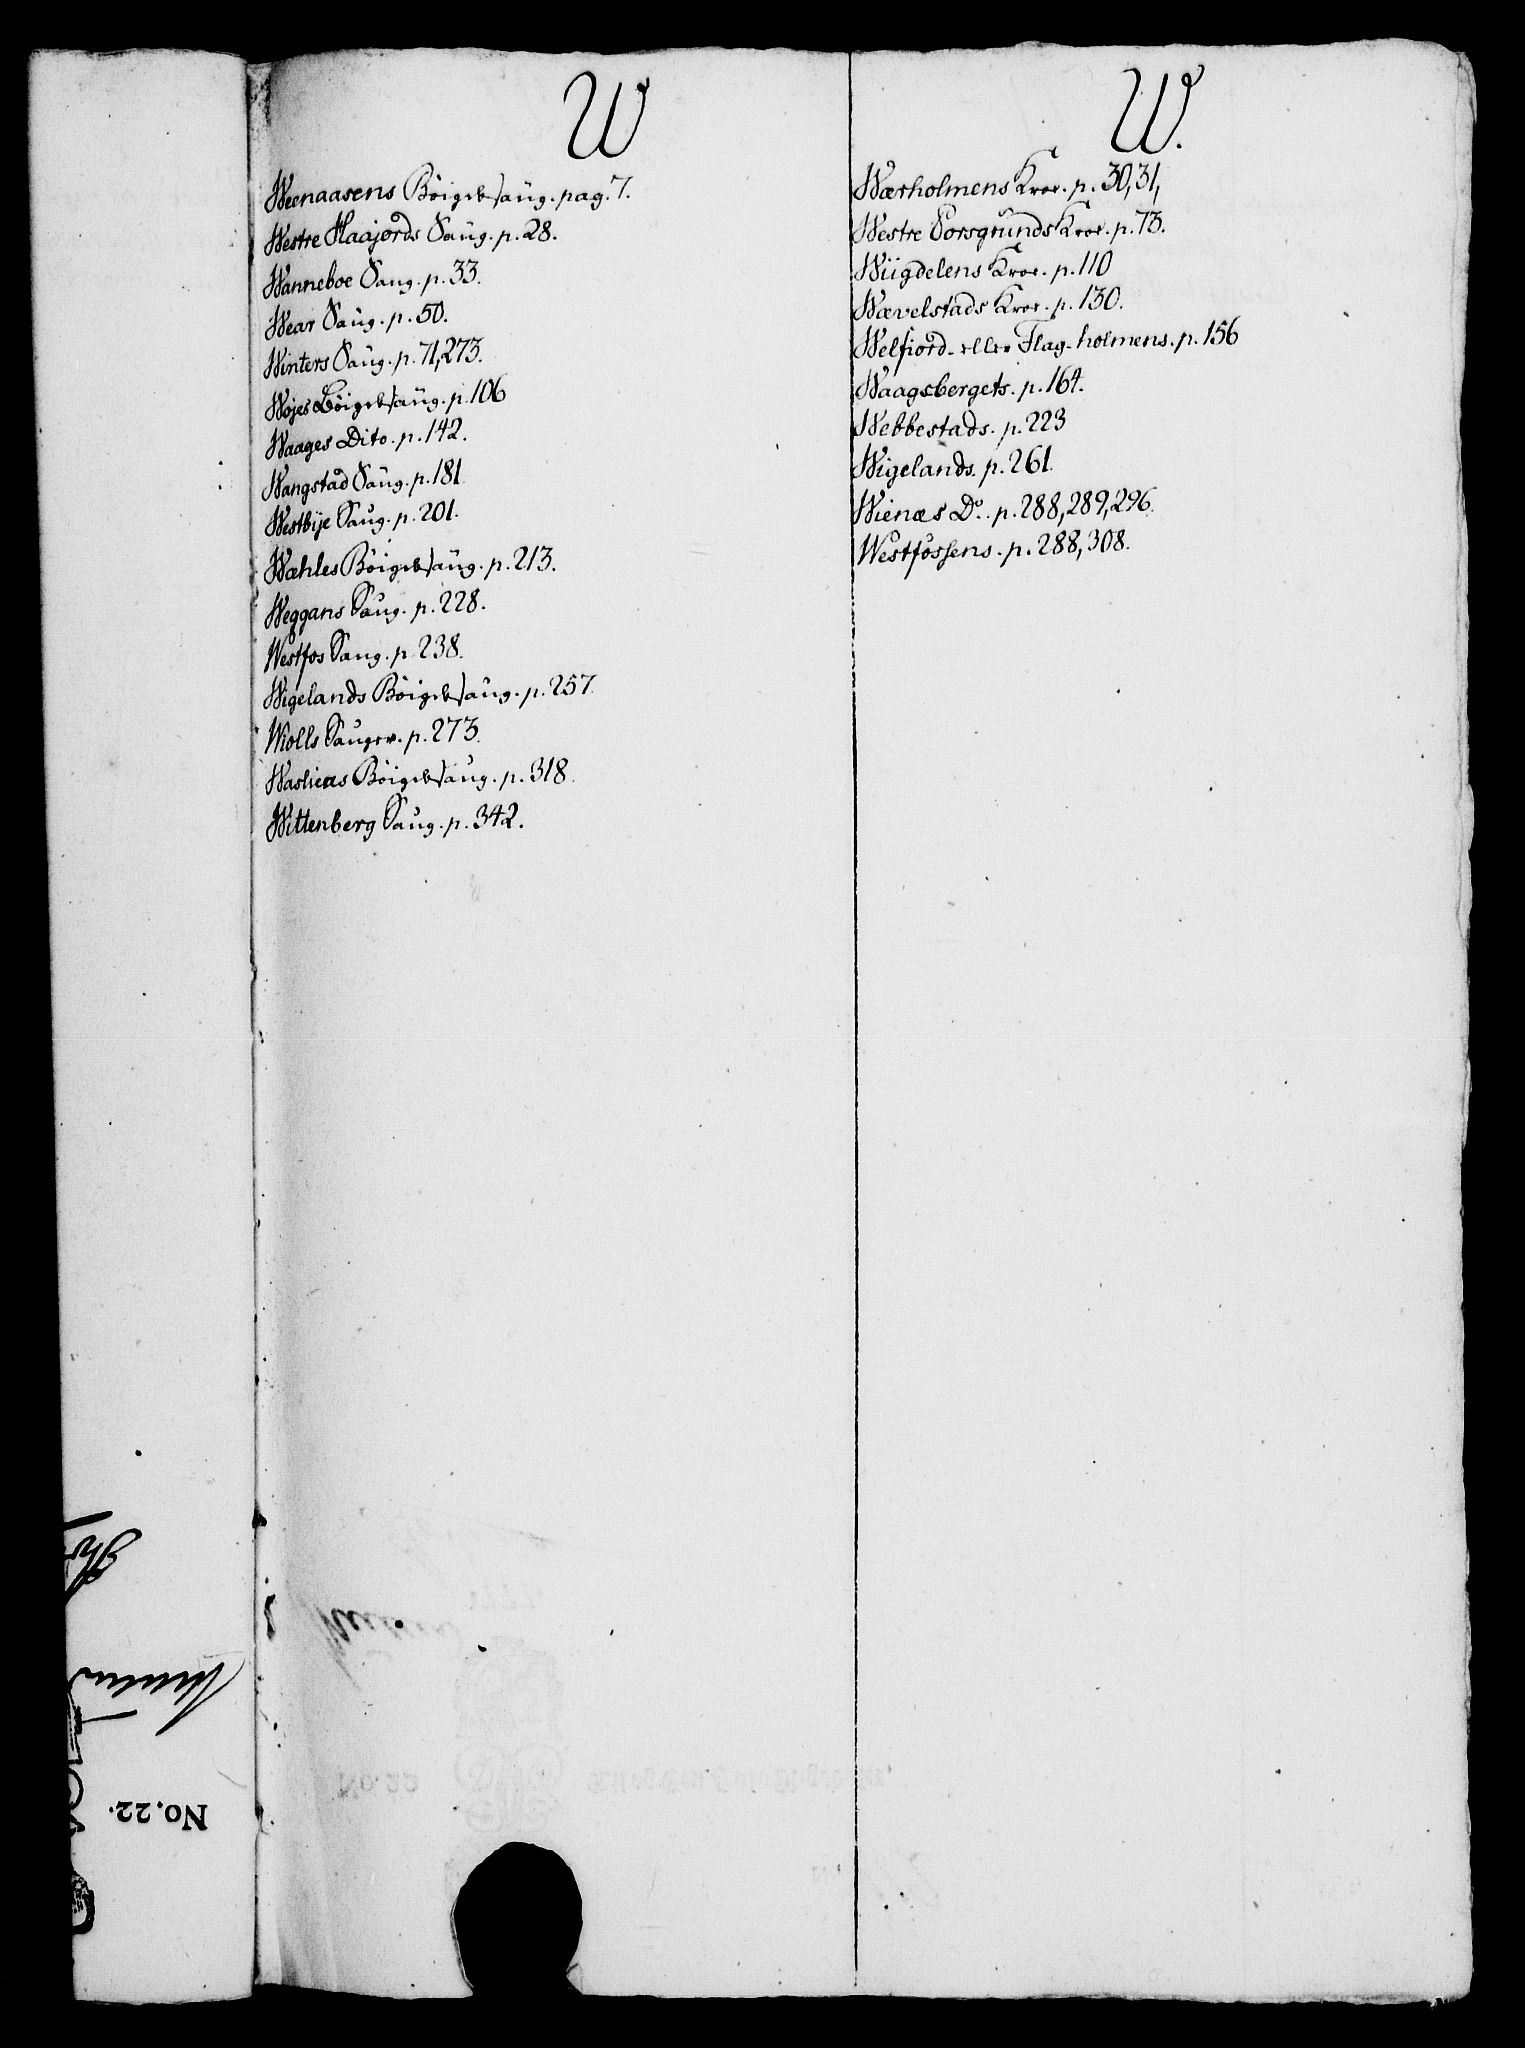 W
Weenaasens Böigdesaug. pag. 7.
Westre Haajords Saug. p. 28.
Wanneboe Saug. p. 33.
Wear Saug. p. 50.
Winters Saug. p. 71, 273.
Wojes Böigdesaug. p. 106
Waages Dito. p. 142.
Wangstad Saug. p. 181
Westbÿe Saug. p. 201.
Wæhles Böigdesaug. p. 213.
Weggans Saug. p. 228.
Westfos Saug. p. 238.
Wigelands Böigdesaug. p. 257.
Wiolls Sauger. p. 273.
Waslieas Böigdesaug. p. 318.
Wittenberg Saug. p. 342.
W.
Wærholmens Kroe. p. 30, 31,
Westre Porsgrunds Kroe. p. 73.
Wiigdelens Kroe. p. 110
Wævelstads Kroe. p. 130.
Welfiord- eller Flag-holmens. p. 156
Waagsbergets. p. 164.
Webbestads. p. 223
Wigelands. p. 261.
Wienæs Do. p. 288, 289, 296.
Westfossens. p. 288, 308.
No. 22.